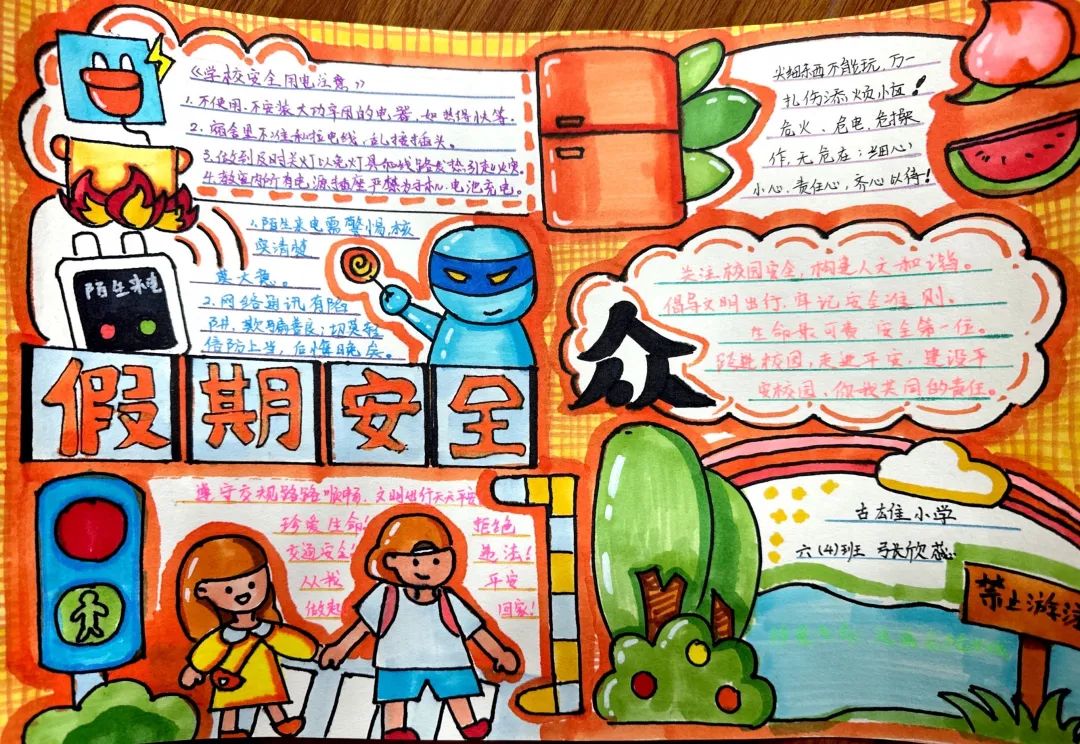 《学校安全用电注意》
1.不使用、不安装大功率用的电器，如热得快等。
2.宿舍里不准私拉电线，乱接插头。
3.做到及时关灯以免灯具和线路发热引起火灾。
4.教室内所有电源插座严禁为手机、电池充电。
1.陌生来电需警惕，核
实清楚
莫大意。
2.网络通讯有陷
阱，欺骗善良；切莫轻
信防上当，后悔晚矣。
陌生来电
假期安全
遵守交规路路顺畅，文明出行天天平安
珍爱生命！
交通安全！
从我
做起
拒绝
违法！
平安
回家！
尖细东西不能玩，万一
扎伤添烦恼！
危火、危电、危操
作，无危在：细心
小心、责任心，齐心以待！
众
关注校园安全，构建人文和谐。
倡导文明出行，牢记安全准则。
生命最可贵 安全第一位。
踏进校园，走进平安，建设平
安校园，你我共同的责任。
古雄小学
六(4)班 张欣蕊
禁止游泳